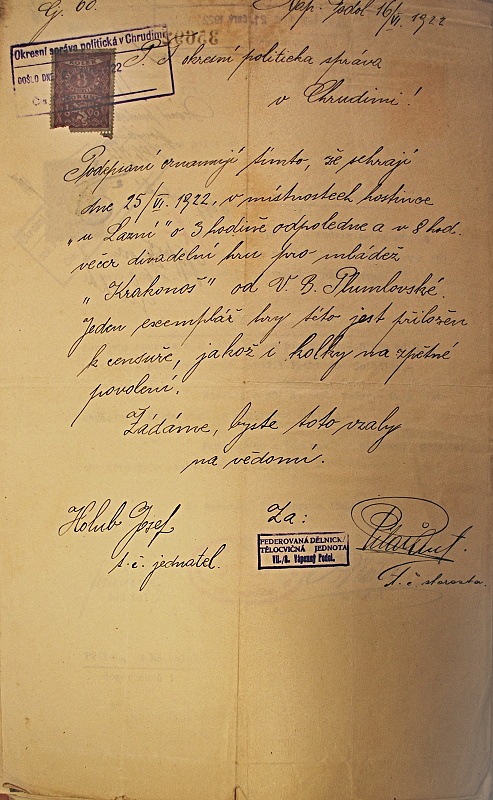 Čj. 60.
Váp. Podol 16/VI. 1922
Okresní správa politická v Chrudimi
DOŠLO DNE
P. T. okresní politická správa
v Chrudimi!
Podepsaní oznamují tímto, že sehrají
dne 25/VI. 1922, v místnostech hostince
„u Lázní" o 3 hodině odpoledne a v 8 hod.
večer divadelní hru pro mládež
„Krakonoš" od V. B. Plumlovské.
Jeden exemplář hry této jest přiložen
k censuře, jakož i kolky na zpětné
povolení.
Žádáme, byste toto vzaly
na vědomí.
Holub Josef
t. č. jednatel.
Za:
FEDEROVANÁ DĚLNICKÁ
TĚLOCVIČNÁ JEDNOTA
VII./8. Vápenný Podol.
t. č. starosta.